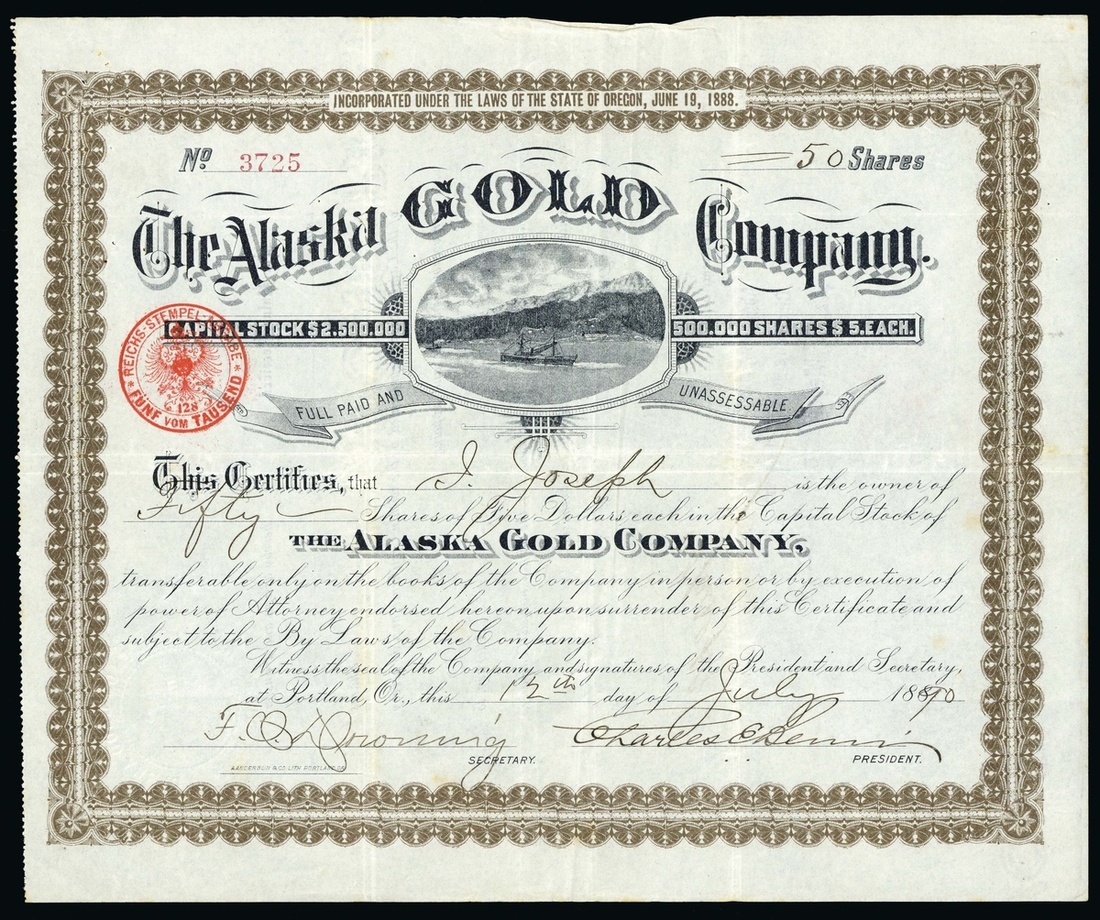 INCORPORATED UNDER THE LAWS OF THE STATE OF OREGON, JUNE 19, 1888.
No 3725 50 Shares
The Alaska GOLD Company.
CAPITAL STOCK $2.500.000 500.000 SHARES $5. EACH.
REICHS-STEMPEL-ABGABE
128
FÜNF VOM TAUSEND
FULL PAID AND UNASSESSABLE
This Certifies, that J. Joseph is the owner of
Fifty Shares of Five Dollars each in the Capital Stock of
THE ALASKA GOLD COMPANY,
transferable only on the books of the Company in person or by execution of
power of Attorney endorsed hereon upon surrender of this Certificate and
subject to the By Laws of the Company.
Witness the seal of the Company and signatures of the President and Secretary,
at Portland, Or., this 12th day of July 1890
F. Downing Charles E.
SECRETARY. PRESIDENT.
ANDERSON & CO. LITH. PORTLAND OR.